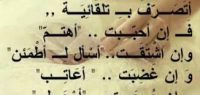 أتصرف بـ تلقائية ,,
فـ إن أحببت .. "أهتم"
وإن اشتقت .. "أسأل لـ أطمئن"
و إن غضبت .. "أعاتب"